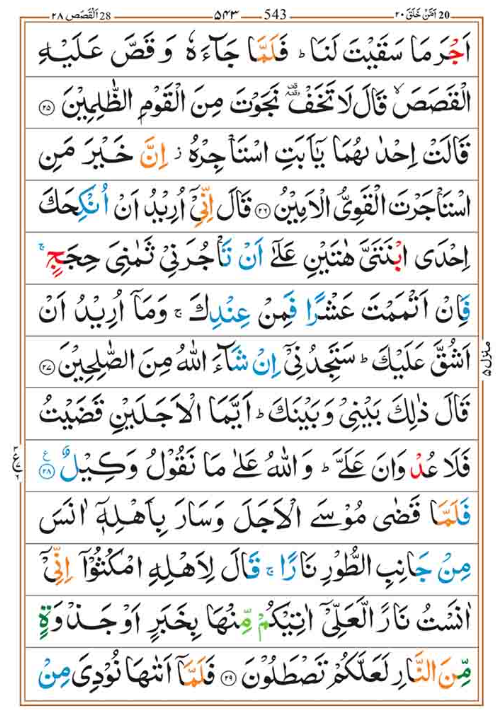 20 اَمَّنْ خَلَقَ ۲۰ 543 ۵۴۳ 28 اَلْقَصَص ۲۸
اَجْرَ مَا سَقَيْتَ لَنَا ؕ فَلَمَّا جَآءَهٗ وَ قَصَّ عَلَيْهِ
الْقَصَصَ ۙ قَالَ لَا تَخَفْ ۥ نَجَوْتَ مِنَ الْقَوْمِ الظّٰلِمِيْنَ ۲۵
قَالَتْ اِحْدٰىهُمَا يٰۤاَبَتِ اسْتَاْجِرْهُ ؗ اِنَّ خَيْرَ مَنِ
اسْتَاْجَرْتَ الْقَوِيُّ الْاَمِيْنُ ۲۶ قَالَ اِنِّيْۤ اُرِيْدُ اَنْ اُنْكِحَكَ
اِحْدَى ابْنَتَيَّ هٰتَيْنِ عَلٰۤى اَنْ تَاْجُرَنِيْ ثَمٰنِيَ حِجَجٍ ۚ
فَاِنْ اَتْمَمْتَ عَشْرًا فَمِنْ عِنْدِكَ ۚ وَمَاۤ اُرِيْدُ اَنْ
اَشُقَّ عَلَيْكَ ؕ سَتَجِدُنِيْۤ اِنْ شَآءَ اللّٰهُ مِنَ الصّٰلِحِيْنَ ۲۷
قَالَ ذٰلِكَ بَيْنِيْ وَبَيْنَكَ ؕ اَيَّمَا الْاَجَلَيْنِ قَضَيْتُ
فَلَا عُدْوَانَ عَلَيَّ ؕ وَ اللّٰهُ عَلٰى مَا نَقُوْلُ وَكِيْلٌ ۲۸ ع
فَلَمَّا قَضٰى مُوْسَى الْاَجَلَ وَسَارَ بِاَهْلِهٖۤ اٰنَسَ
مِنْ جَانِبِ الطُّوْرِ نَارًا ۚ قَالَ لِاَهْلِهِ امْكُثُوْۤا اِنِّيْۤ
اٰنَسْتُ نَارًا لَّعَلِّيْۤ اٰتِيْكُمْ مِّنْهَا بِخَبَرٍ اَوْ جَذْوَةٍ
مِّنَ النَّارِ لَعَلَّكُمْ تَصْطَلُوْنَ ۲۹ فَلَمَّاۤ اَتٰىهَا نُوْدِيَ مِنْ
منزل ۵